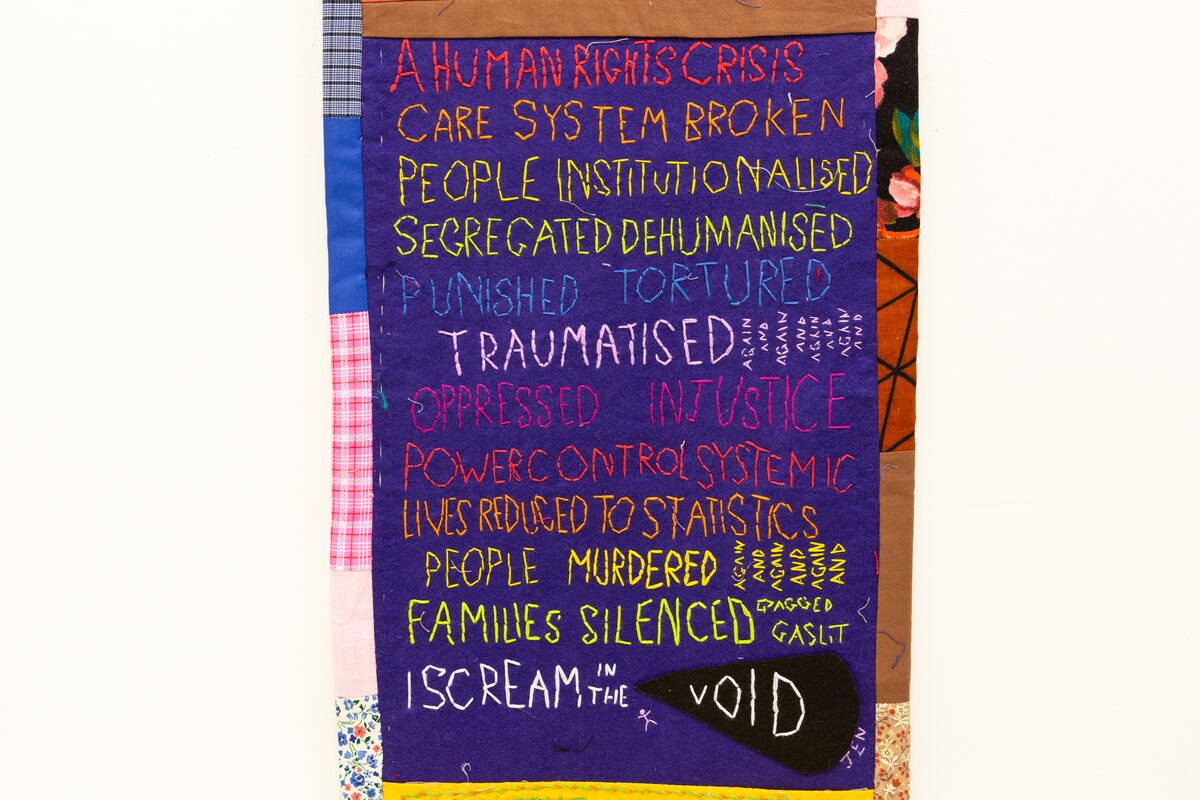 A HUMAN RIGHTS CRISIS
CARE SYSTEM BROKEN
PEOPLE INSTITUTIONALISED
SEGREGATED DEHUMANISED
PUNISHED TORTURED
TRAUMATISED AGAIN AND AGAIN AND AGAIN AND AGAIN AND
OPPRESSED INJUSTICE
POWER CONTROL SYSTEMIC
LIVES REDUCED TO STATISTICS
PEOPLE MURDERED AGAIN AND AGAIN AND AGAIN AND
FAMILIES SILENCED GAGGED
GASLIT
I SCREAM IN THE VOID
JEN